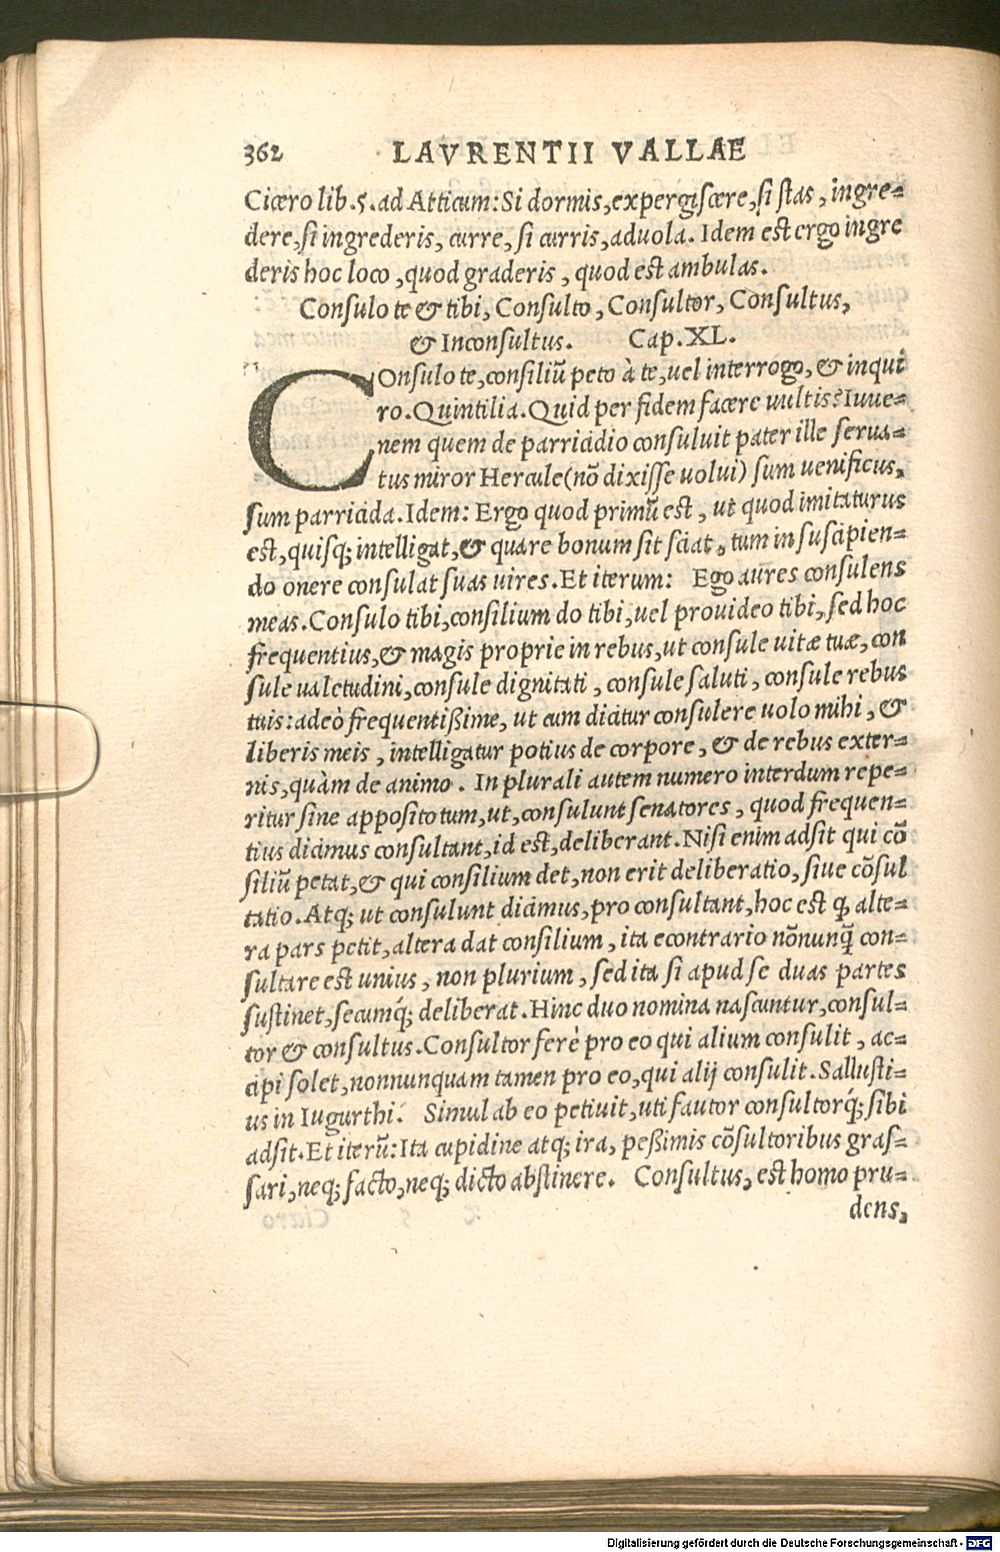 362 LAVRENTII VALLAE
Cicero lib.5.ad Atticum:Si dormis,expergiscere,si stas,ingre-
dere,si ingrederis, curre, si curris,aduola. Idem est ergo ingre
deris hoc loco,quod graderis, quod est ambulas.
Consulo te & tibi, Consulto, Consultor, Consultus,
& Inconsultus. Cap.XL.
COnsulo te,consiliũ peto à te,uel interrogo, & inqui
ro.Quintilia.Quid per fidem facere uultis? Iuue-
nem quem de parricidio consuluit pater ille serua-
tus miror Hercule(nõ dixisse uolui) sum ueneficus,
sum parricida.Idem: Ergo quod primũ est, ut quod imitaturus
est,quisq; intelligat,& quare bonum sit sciat, tum in suscipien-
do onere consulat suas uires.Et iterum: Ego aures consulens
meas.Consulo tibi,consilium do tibi,uel prouideo tibi,sed hoc
frequentius,& magis proprie in rebus,ut consule uitæ tuæ,con
sule ualetudini,consule dignitati, consule saluti, consule rebus
tuis:adeò frequentißime, ut cum dicitur consulere uolo mihi, &
liberis meis, intelligatur potius de corpore, & de rebus exter-
nis,quàm de animo. In plurali autem numero interdum repe-
ritur sine appositotum,ut,consulunt senatores, quod frequen-
tius dicimus consultant,id est,deliberant.Nisi enim adsit qui cõ
siliũ petat,& qui consilium det,non erit deliberatio,siue cõsul
tatio.Atq; ut consulunt dicimus,pro consultant,hoc est ꝙ alte-
ra pars petit,altera dat consilium, ita econtrario nõnunq̃ con-
sultare est unius, non plurium, sed ita si apud se duas partes
sustinet,secumq́; deliberat.Hinc duo nomina nascuntur,consul-
tor & consultus.Consultor ferè pro eo qui alium consulit, ac-
cipi solet,nonnunquam tamen pro eo,qui alij consulit.Sallusti-
us in Iugurthi. Simul ab eo petiuit,uti fautor consultorq́; sibi
adsit.Et iterũ:Ita cupidine atq; ira, peßimis cõsultoribus graf-
sari,neq; facto,neq; dicto abstinere. Consultus, est homo pru-
dens,
Digitalisierung gefördert durch die Deutsche Forschungsgemeinschaft - DFG